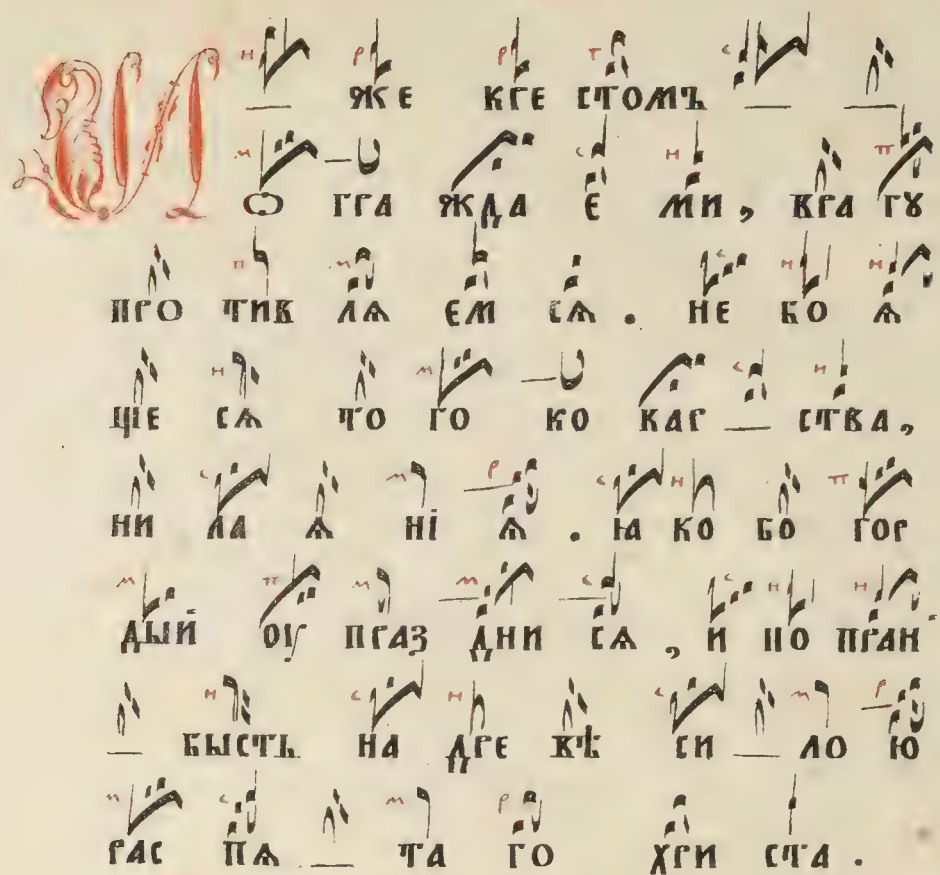 И _ же кре стомъ _ _
ѡ гра жда е ми, вра гꙋ
про тив лѧ ем сѧ. не бо ѧ
ще сѧ то го ко вар _ ства,
ни ла ѧ ні ѧ. ꙗ ко бо гор
дый оу праз дни сѧ, и по пран
_ бысть на дре вѣ си _ ло ю
рас пѧ _ та го хри ста.